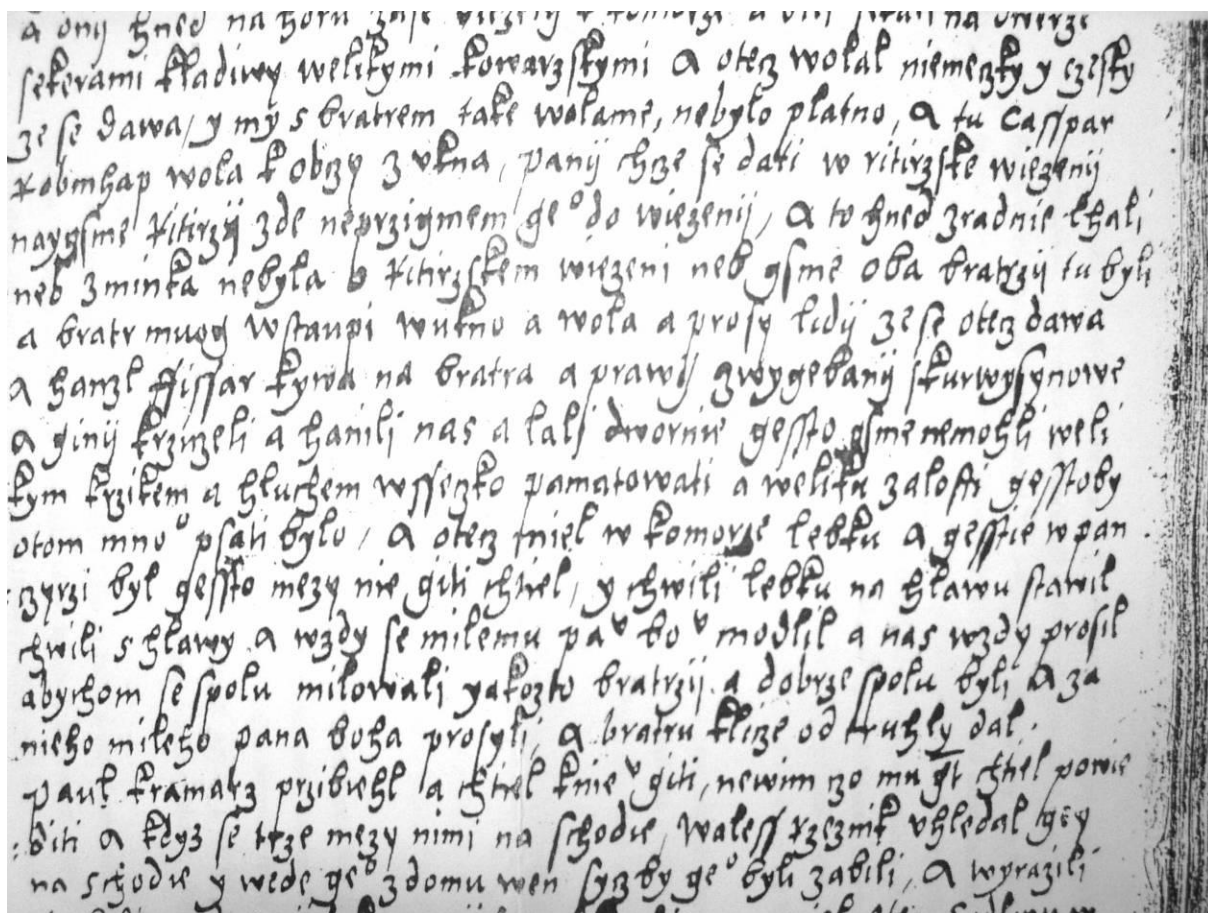 a onij hned na horu zase wiezeny k komorze a biti sekali na dwerze
sekerami kladiwy welikymi kowarzskymi A otecz wolal niemeczky y czesky
ze se dawa, y my s bratrem take wolame, nebylo platno, A tu Casspar
wola k obczy z vkna, panij chcze se dati w ritirzske wiezenij
naygsme Ritirzij zde neprzigmem ge° do wiezenij, A to hned zradnie lhali
neb zminka nebyla o Ritirzskem wiezeni neb gsme oba bratrzij tu byli
a bratr muog wstaupi wukno a wola a prosy lidij ze se otecz dawa
A hanzl ffissar kywa na bratra a prawij zwygebanij skurwysynowe
A ginij krziczeli a hanili nas a lali dwornie gessto gsme nemohli weli
kym krzikem a hluchem wsseczko pamatowati a weliku zalosti gesstoby
otom mno° psati bylo, A otecz miel w komorze lebku A gesstie w pan
czyrzi byl gessto mezy nie giti chtiel, y chwili lebku na hlawu stawil
chwili s hlawy A wzdy se milemu pa^v bo^v modlil a nas wzdy prosil
abychom se spolu milowali yakozto bratrzij a dobrze spolu byli A za
nieho mileho pana boha prosyli, A bratru klicze od truhly dal.
Paul kramarz przibiehl a chtiel knie^v giti, newim czo mu gt chtiel powie
diti A kdyz se trze mezy nimi na schodie, waless rzeznik vhledal gey
na schodie y wede ge° z domu wen syczby ge° byli zabili, A wyrazili